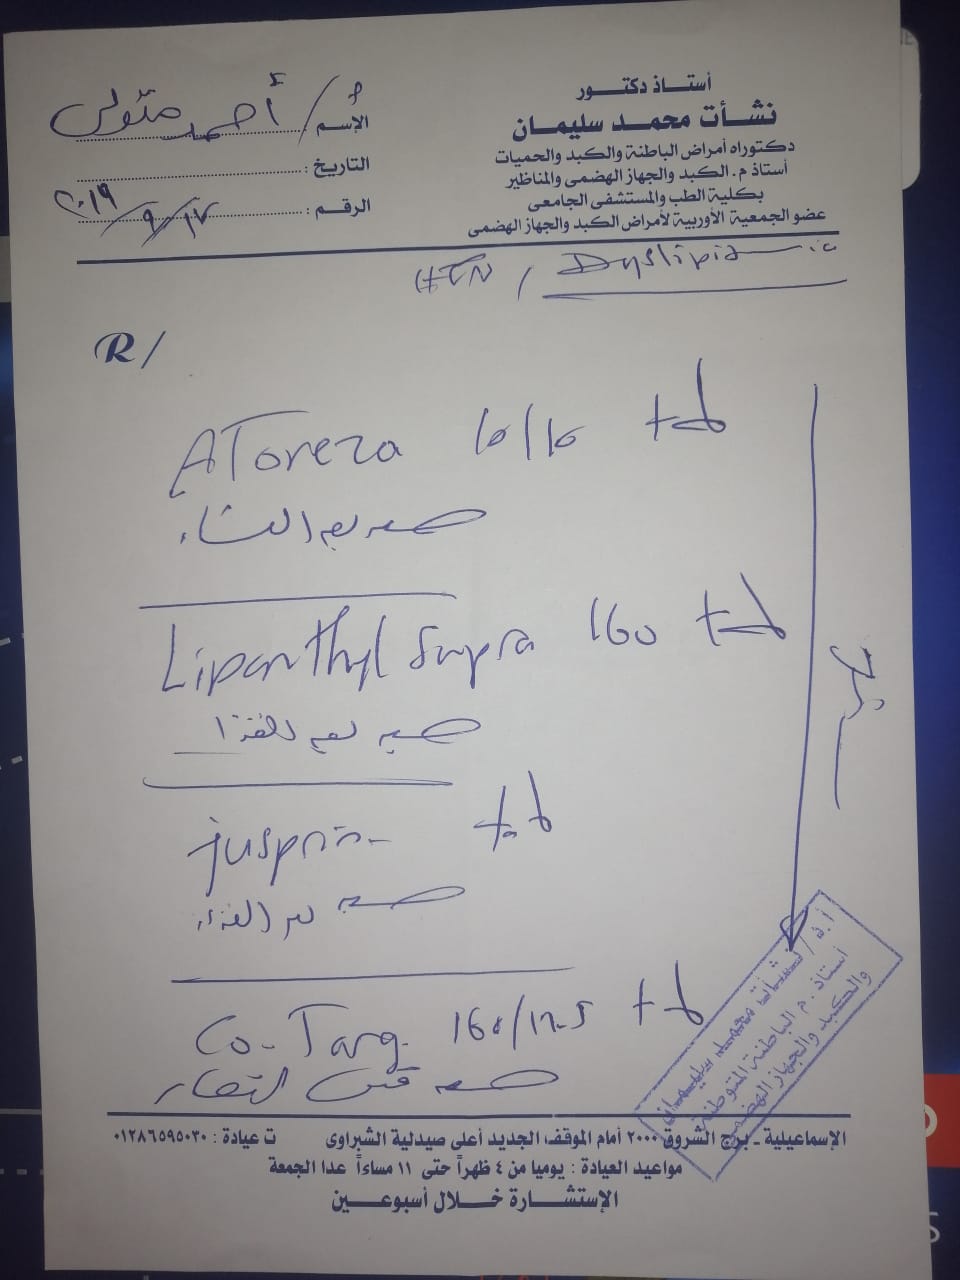 أستاذ دكتور
نشأت محمد سليمان
دكتوراه أمراض الباطنة والكبد والحميات
أستاذ م. الكبد والجهاز الهضمى والمناظير
بكلية الطب والمستشفى الجامعى
عضو الجمعية الأوربية لأمراض الكبد والجهاز الهضمى
الإسم : أ/ أحمد متولى
التاريخ :
الرقم : ١٧/٩/٢٠١٩
HTN / Dyslipidemia
R/
ATOreza 10/10 tab
حبه بعد العشاء
Lipanthyl Supra 160 tab
حبه بعد الغذا
jusprin tab
حبه بعد الغذاء
Co-Tareg 160/12.5 tab
حبه قبل الفطار
أ.د/ نشأت محمد سليمان
أستاذ.م الباطنة المتوطنة
والكبد والجهاز الهضمى
الإسماعيلية - برج الشروق ٢٠٠٠ أمام الموقف الجديد أعلى صيدلية الشبراوى ت عيادة : ٠١٢٨٦٥٩٥٠٣٠
مواعيد العيادة : يوميا من ٤ ظهراً حتى ١١ مساءاً عدا الجمعة
الإستشارة خلال أسبوعين